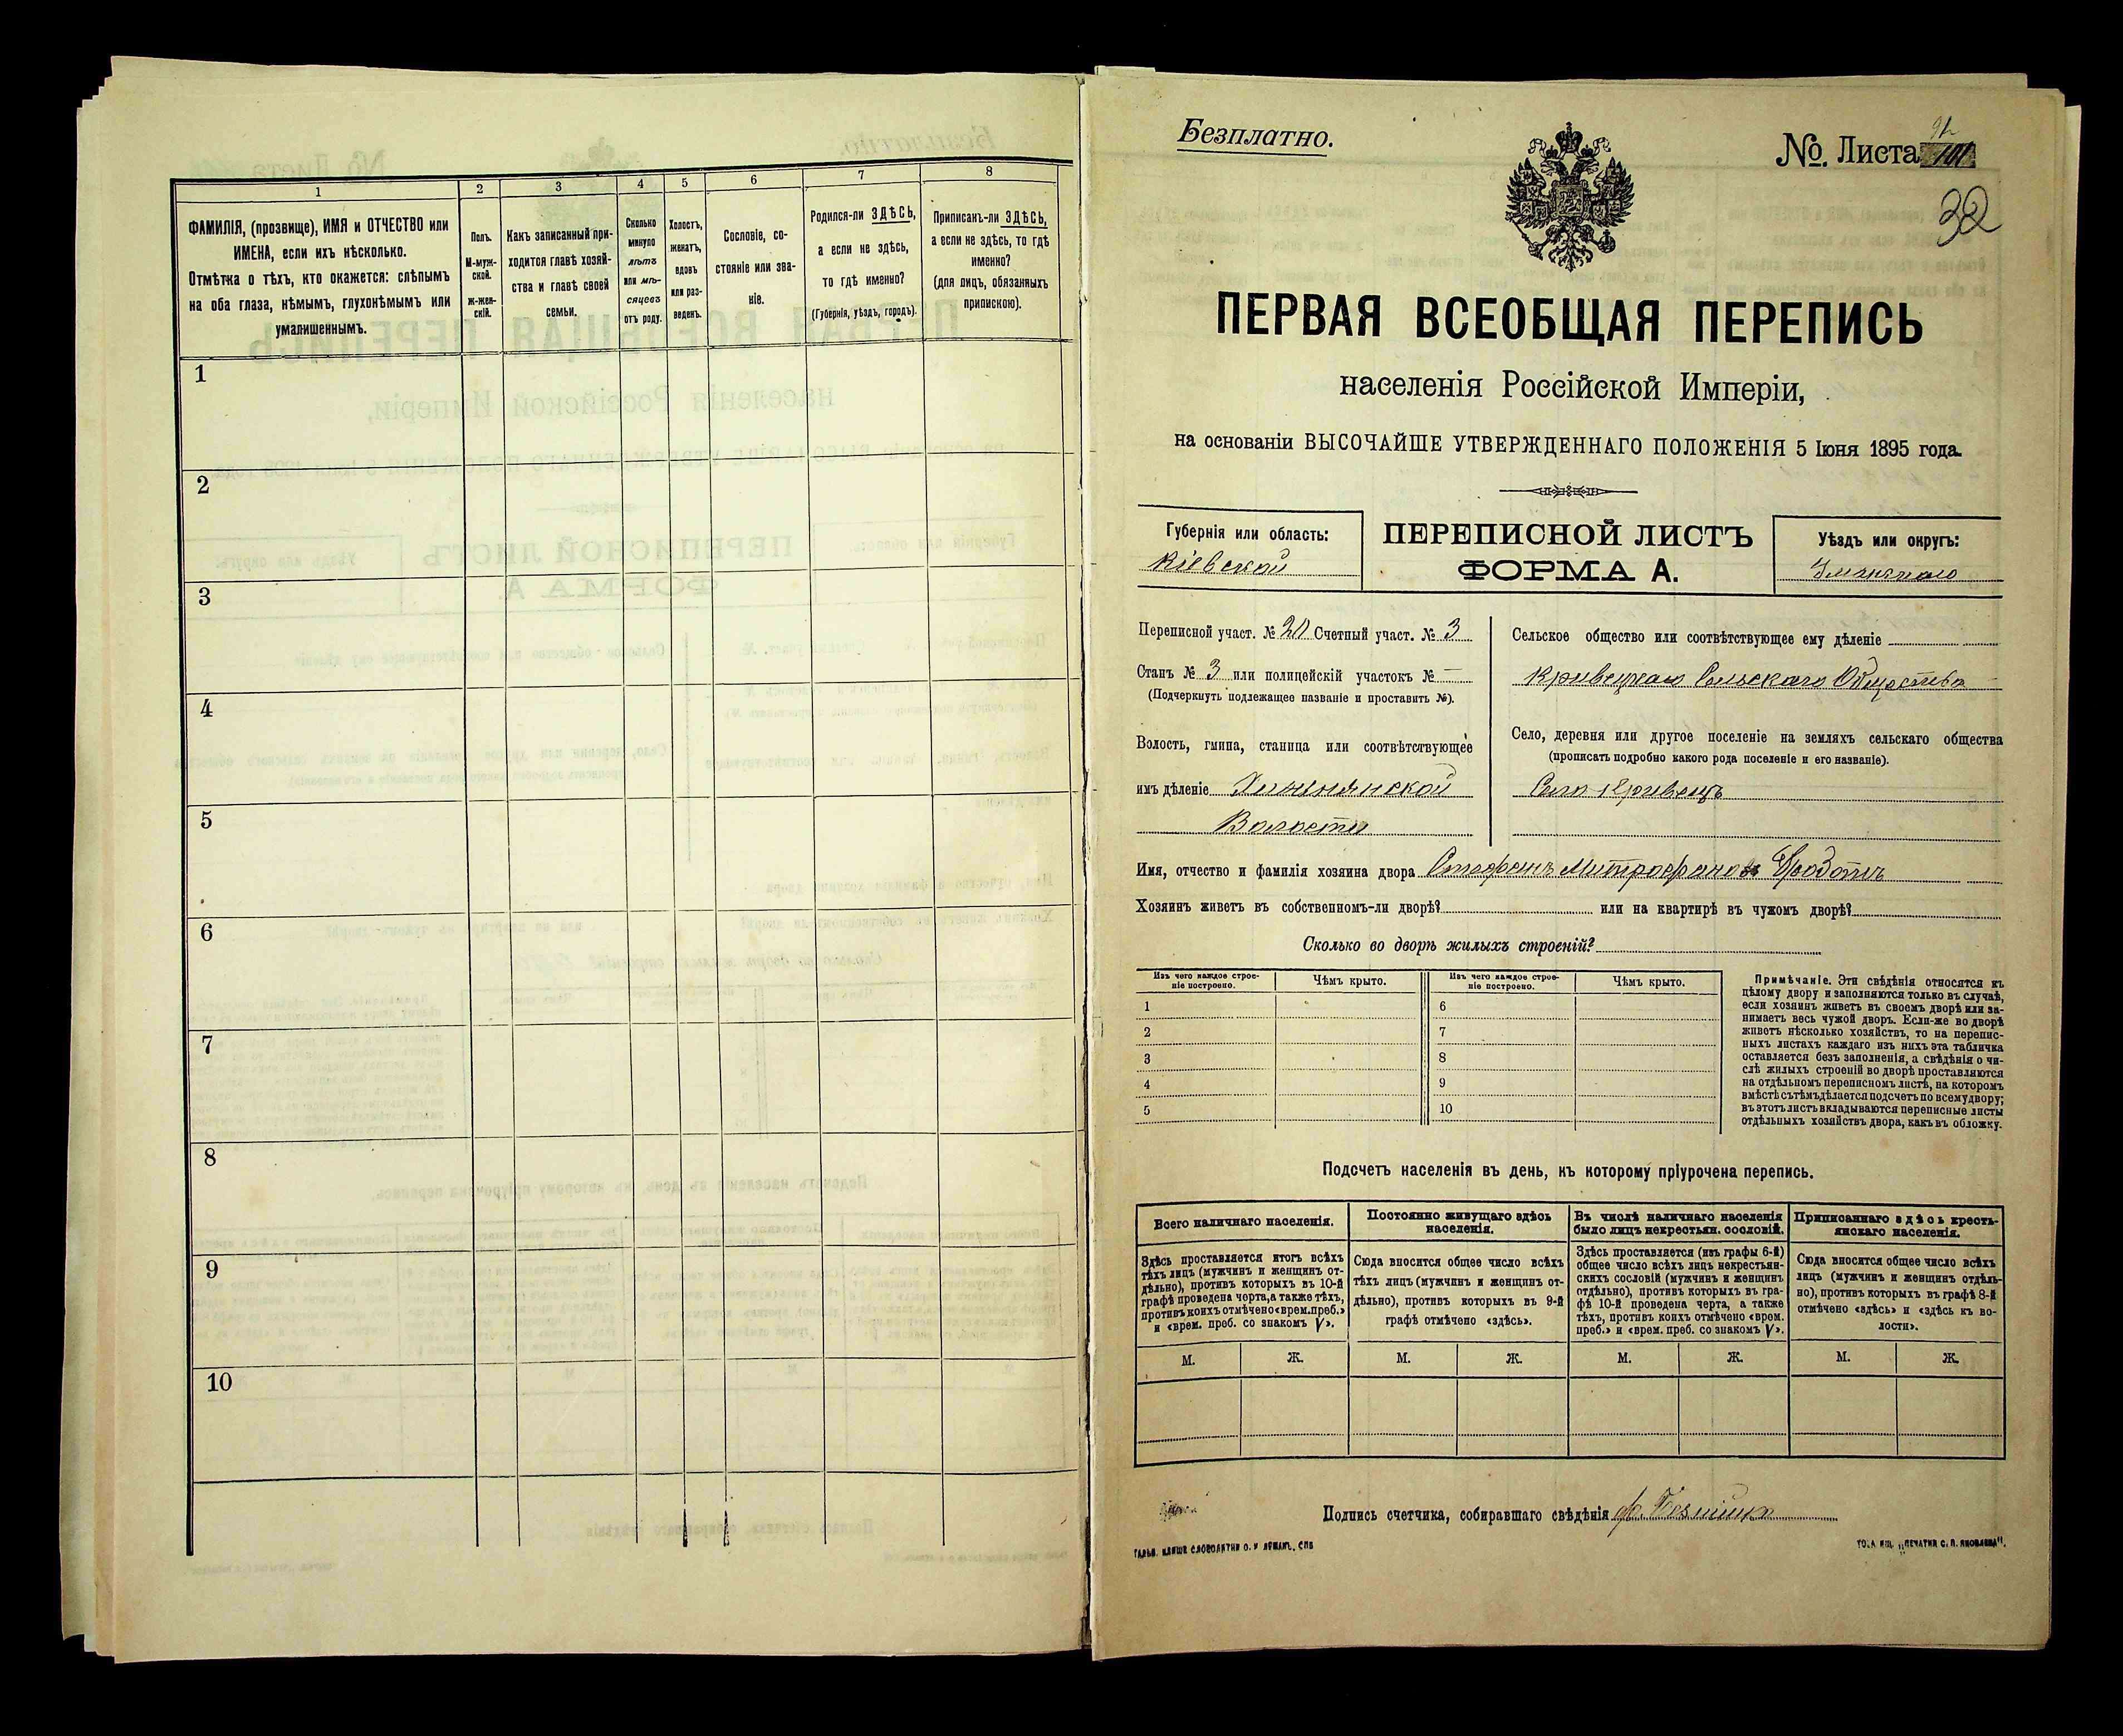 1
2
3
4
5
6
7
8
ФАМИЛІЯ, (прозвище), ИМЯ и ОТЧЕСТВО или
ИМЕНА, если ихъ нѣсколько.
Отмѣтка о тѣхъ, кто окажется: слѣпымъ
на оба глаза, нѣмымъ, глухонѣмымъ или
умалишеннымъ.
Полъ.
М-муж-
ской.
Ж-жен-
скій.
Какъ записанный при-
ходится главѣ хозяй-
ства и главѣ своей
семьи.
Сколько
минуло
лѣтъ
или мѣ-
сяцевъ
отъ роду.
Холостъ,
женатъ,
вдовъ
или раз-
веденъ.
Сословіе, со-
стояніе или зва-
ніе.
Родился-ли ЗДѢСЬ,
а если не здѣсь,
то гдѣ именно?
(Губернія, уѣздъ, городъ).
Приписанъ-ли ЗДѢСЬ,
а если не здѣсь, то гдѣ
именно?
(для лицъ, обязанныхъ
припискою).
1
2
3
4
5
6
7
8
9
10
Безплатно.
№. Листа 101
32
ПЕРВАЯ ВСЕОБЩАЯ ПЕРЕПИСЬ
населенія Россійской Имперіи,
на основаніи ВЫСОЧАЙШЕ УТВЕРЖДЕННАГО ПОЛОЖЕНІЯ 5 Іюня 1895 года.
Губернія или область:
Кіевской
ПЕРЕПИСНОЙ ЛИСТЪ
ФОРМА А.
Уѣздъ или округъ:
Переписной участ. № 20 Счетный участ. № 3
Станъ № 3 или полицейскій участокъ № —
(Подчеркнуть подлежащее названіе и проставить №).
Волость, гмина, станица или соотвѣтствующее
имъ дѣленіе
Волости
Сельское общество или соотвѣтствующее ему дѣленіе
Кривецкаго Сельскаго Общества
Село, деревня или другое поселеніе на земляхъ сельскаго общества
(прописать подробно какого рода поселеніе и его названіе).
Село Кривецъ
Имя, отчество и фамилія хозяина двора Стефанъ Митрофановъ
Хозяинъ живетъ въ собственномъ-ли дворѣ? или на квартирѣ въ чужомъ дворѣ?
Сколько во дворѣ жилыхъ строеній?
Изъ чего каждое строе-
ніе построено.
Чѣмъ крыто.
Изъ чего каждое строе-
ніе построено.
Чѣмъ крыто.
1
6
2
7
3
8
4
9
5
10
Примѣчаніе. Эти свѣдѣнія относятся къ
цѣлому двору и заполняются только въ случаѣ,
если хозяинъ живетъ въ своемъ дворѣ или за-
нимаетъ весь чужой дворъ. Если-же во дворѣ
живетъ нѣсколько хозяйствъ, то на перепис-
ныхъ листахъ каждаго изъ нихъ эта табличка
оставляется безъ заполненія, а свѣдѣнія о чи-
слѣ жилыхъ строеній во дворѣ проставляются
на отдѣльномъ переписномъ листѣ, на которомъ
вмѣстѣ съ тѣмъ дѣлается подсчетъ по всему двору;
въ этотъ листъ вкладываются переписные листы
отдѣльныхъ хозяйствъ двора, какъ въ обложку.
Подсчетъ населенія въ день, къ которому пріурочена перепись.
Всего наличнаго населенія.
Постоянно живущаго здѣсь
населенія.
Въ числѣ наличнаго населенія
было лицъ некрестьян. сословій.
Приписаннаго здѣсь кресть-
янскаго населенія.
Здѣсь проставляется итогъ всѣхъ
тѣхъ лицъ (мужчинъ и женщинъ от-
дѣльно), противъ которыхъ въ 10-й
графѣ проведена черта, а также тѣхъ,
противъ коихъ отмѣчено «врем. преб.»
и «врем. преб. со знакомъ V».
Сюда вносится общее число всѣхъ
тѣхъ лицъ (мужчинъ и женщинъ от-
дѣльно), противъ которыхъ въ 9-й
графѣ отмѣчено «здѣсь».
Здѣсь проставляется (изъ графы 6-й)
общее число всѣхъ лицъ некрестьян-
скихъ сословій (мужчинъ и женщинъ
отдѣльно), противъ которыхъ въ гра-
фѣ 10-й проведена черта, а также
тѣхъ, противъ коихъ отмѣчено «врем.
преб.» и «врем. преб. со знакомъ V».
Сюда вносится общее число всѣхъ
лицъ (мужчинъ и женщинъ отдѣль-
но), противъ которыхъ въ графѣ 8-й
отмѣчено «здѣсь» и «здѣсь къ во-
лости».
М.
Ж.
М.
Ж.
М.
Ж.
М.
Ж.
Подпись счетчика, собиравшаго свѣдѣнія
ГАЛЬВ. КЛИШЕ СЛОВОЛИТНИ О. И. ЛЕМАНЪ, СПБ